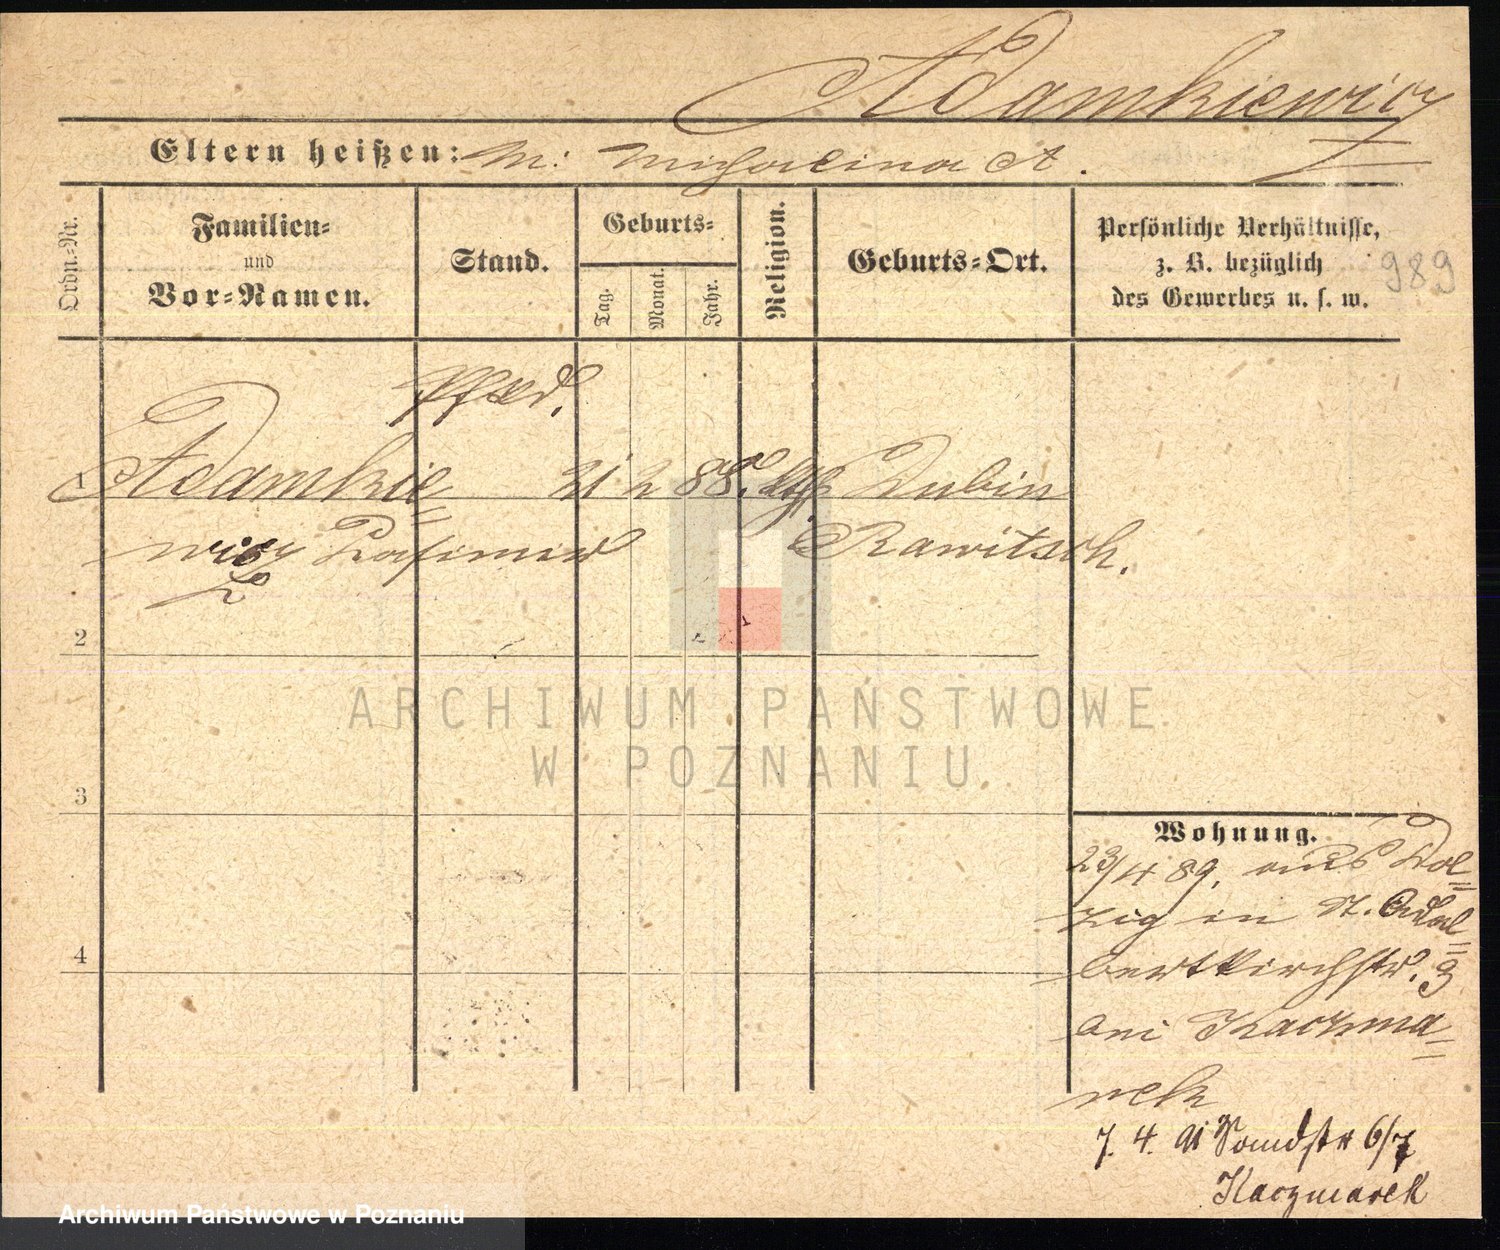 Adamkiewicz
Eltern heißen: M: Michalina A.
989
Ordn.-Nr.
Familien-
und
Vor-Namen.
Stand.
Geburts-
Tag.
Monat.
Jahr.
Religion.
Geburts-Ort.
Persönliche Verhältnisse,
z. B. bezüglich
des Gewerbes u. s. w.
Pfkd.
1 Adamkie= 21 2 88. kth. Dubin
wicz Kasimir Rawitsch.
2
3
4
Wohnung.
23/4 89. aus Dol=
zig in St. Adal=
bertkirchstr. 3
bei Kaczma=
rek
7. 4. 91 Sandstr 6/7
Kaczmarek
ARCHIWUM PAŃSTWOWE
W POZNANIU
Archiwum Państwowe w Poznaniu